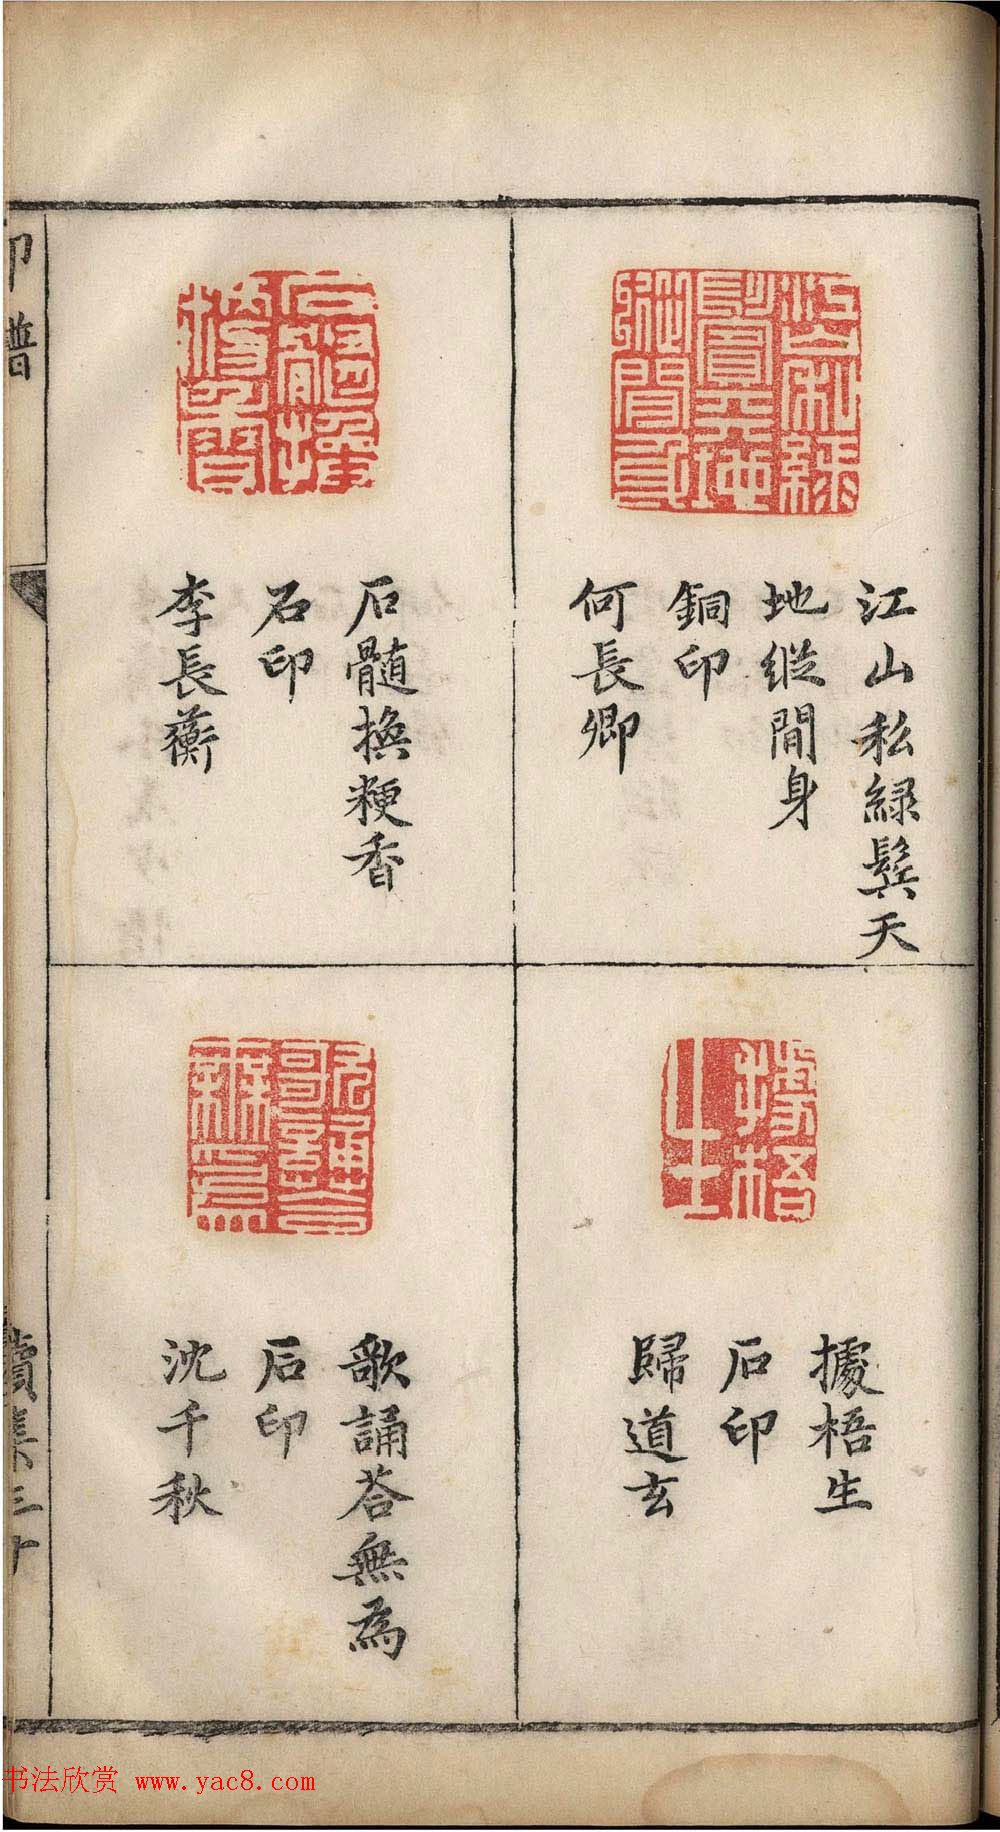 江山私綠鬂天
地縱閒身
銅印
何長卿
據梧生
石印
歸道玄
石髓換粳香
石印
李長蘅
歌誦荅無為
石印
沈千秋
印譜
續集三十
书法欣赏 www.yac8.com